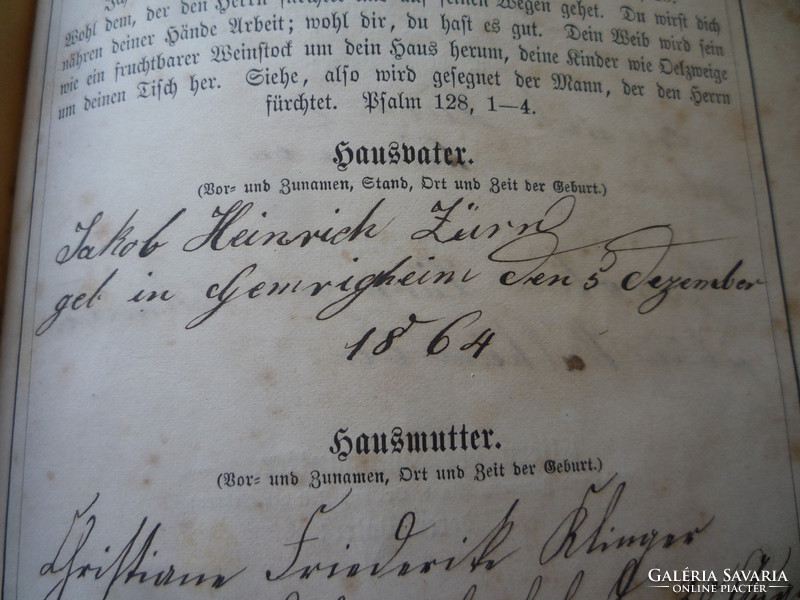 Wohl dem, der den Herrn fürchtet und auf seinen Wegen gehet. Du wirst dich
nähren deiner Hände Arbeit; wohl dir, du hast es gut. Dein Weib wird sein
wie ein fruchtbarer Weinstock um dein Haus herum, deine Kinder wie Oelzweige
um deinen Tisch her. Siehe, also wird gesegnet der Mann, der den Herrn
fürchtet. Psalm 128, 1—4.
Hausvater.
(Vor= und Zunamen, Stand, Ort und Zeit der Geburt.)
Jakob Heinrich Zürn
geb in Gemrigheim den 5 Dezember
1864
Hausmutter.
(Vor= und Zunamen, Ort und Zeit der Geburt.)
Christiane Friederike Klinger
GALÉRIA SAVARIA
ONLINE PIACTÉR